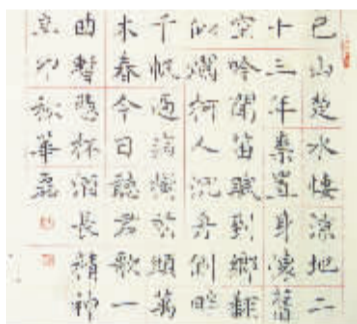 巴山楚水悽涼地二
十三年棄置身懷舊
空吟聞笛賦到鄉翻
似爛柯人沉舟側畔
千帆過病樹前頭萬
木春今日聽君歌一
曲暫憑杯酒長精神
癸卯秋華磊